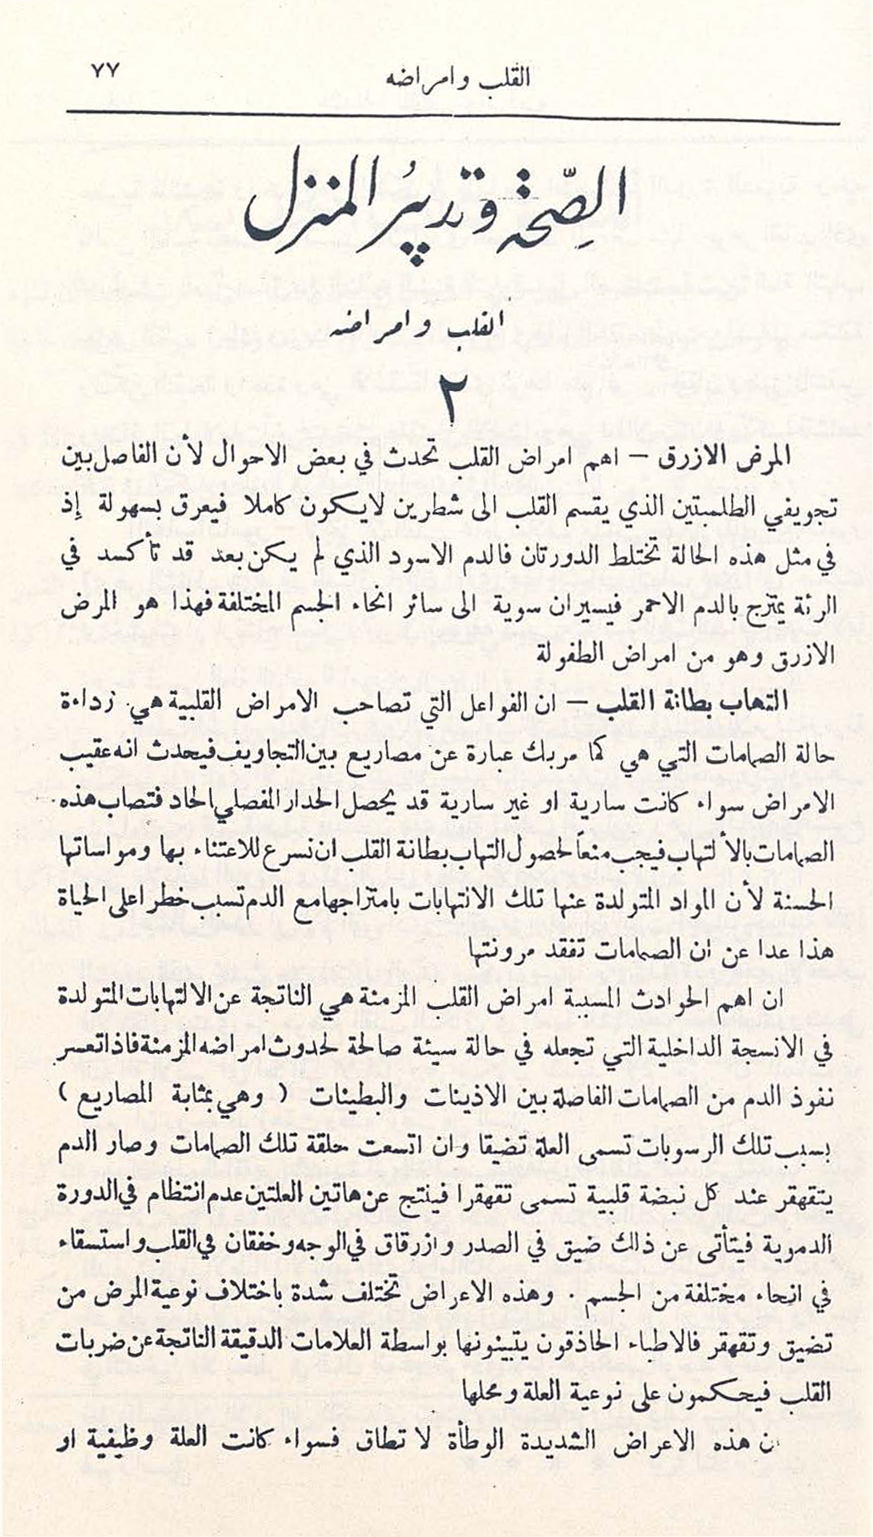 القلب وامراضه ٧٧
الصّحة وتدبيرُ المنزل
القلب وامراضه
٢
المرض الازرق — اهم امراض القلب تحدث في بعض الاحوال لأن الفاصل بين
تجويفي الطلمبتين الذي يقسم القلب الى شطرين لا يكون كاملا فيعرق بسهولة إذ
في مثل هذه الحالة تختلط الدورتان فالدم الاسود الذي لم يكن بعد قد تأكسد في
الرئة يمتزج بالدم الاحمر فيسيران سوية الى سائر انحاء الجسم المختلفة فهذا هو المرض
الازرق وهو من امراض الطفولة
التهاب بطانة القلب — ان الفواعل التي تصاحب الامراض القلبية هي رداءة
حالة الصمامات التي هي كما مر بك عبارة عن مصاريع بين التجاويف فيحدث انه عقيب
الامراض سواء كانت سارية او غير سارية قد يحصل الحدار المفصلي الحاد فتصاب هذه
الصمامات بالألتهاب فيجب منعاً لحصول التهاب بطانة القلب ان نسرع للاعتناء بها ومواساتها
الحسنة لأن المواد المتولدة عنها تلك الالتهابات بامتزاجها مع الدم تسبب خطرا على الحياة
هذا عدا عن ان الصمامات تفقد مرونتها
ان اهم الحوادث المسببة امراض القلب المزمنة هي الناتجة عن الالتهابات المتولدة
في الانسجة الداخلية التي تجعله في حالة سيئة صالحة لحدوث امراضه المزمنة فاذا تعسر
نفوذ الدم من الصمامات الفاصلة بين الاذينات والبطينات ( وهي بمثابة المصاريع )
بسبب تلك الرسوبات تسمى العلة تضيقا وان اتسعت حلقة تلك الصمامات وصار الدم
يتقهقر عند كل نبضة قلبية تسمى تقهقرا فينتج عن هاتين العلتين عدم انتظام في الدورة
الدموية فيتأتى عن ذلك ضيق في الصدر وازرقاق في الوجه وخفقان في القلب واستسقاء
في انحاء مختلفة من الجسم . وهذه الاعراض تختلف شدة باختلاف نوعية المرض من
تضيق وتقهقر فالاطباء الحاذقون يتبينونها بواسطة العلامات الدقيقة الناتجة عن ضربات
القلب فيحكمون على نوعية العلة ومحلها
ن هذه الاعراض الشديدة الوطأة لا تطاق فسواء كانت العلة وظيفية او